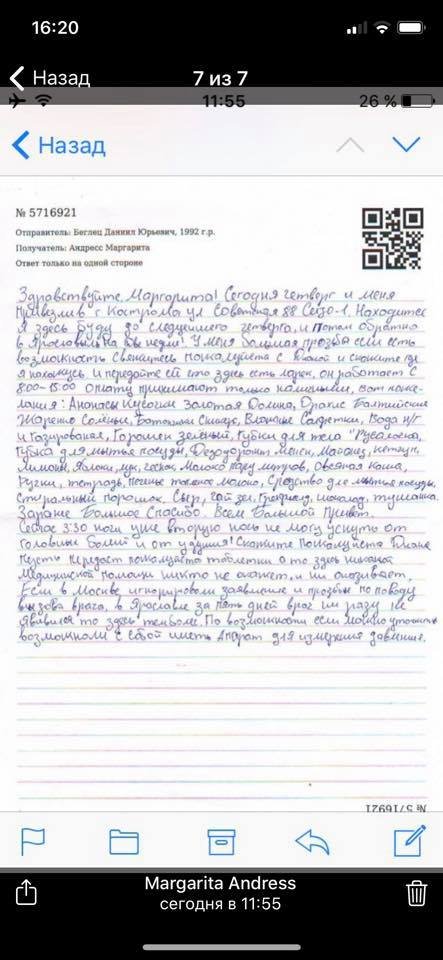 16:20
Назад
7 из 7
11:55
26 %
Назад
№ 5716921
Отправитель: Беглец Даниил Юрьевич, 1992 г.р.
Получатель: Андресс Маргарита
Ответ только на одной стороне
Здравствуйте, Маргарита! Сегодня четверг и меня
привезли в г. Кострома ул Советская 88 Сизо-1. Находится
я здесь буду до следующего четверга, и потом обратно
в Ярославль на две недели! У меня большая прозьба если есть
возможность свяжитесь пожалуйста с и скажите где
я нахожусь и передайте ей что здесь есть ларек, он работает с
8:00-15:00 Оплату принимают только наличными, вот поже-
лания: Ананасы кусочки Золотая Долина, Арахис Балтийский
Жареный Солёный, Батончики Сникерс, Влажные Салфетки, Вода н/г
и газированая, Горошек зеленый, Губки для тела "Русалочка",
Губка для мытья посуды, Дезодорант Менен, Майонез, кетчуп,
Лимоны, Яблоки, лук, чеснок, Молоко литров, Овсяная каша,
Ручки, тетрадь, Печенье топленое молоко, Средство для мытья посуды,
Стиральный порошок, Сыр, чай зел, Грейпфрут, шоколад, тушонка.
Заранее Большое Спасибо. Всем Большой Привет.
Сейчас 3:30 ночи уже вторую ночь не могу уснуть от
головных болей и от удушия! Скажите пожалуйста Диане
пусть передаст пожалуйста таблетки а то здесь никакой
Медицинской помощи никто не окажет, и ни оказывает.
Если в Москве игнорировали заявление и прозьбы по поводу
вызова врача, в Ярославле за пять дней врач ни разу не
явился то здесь тем более. По возможности если можно уточнить
возможноли с собой иметь Апарат для измерения давление.
№ 5716921
Margarita Andress
сегодня в 11:55